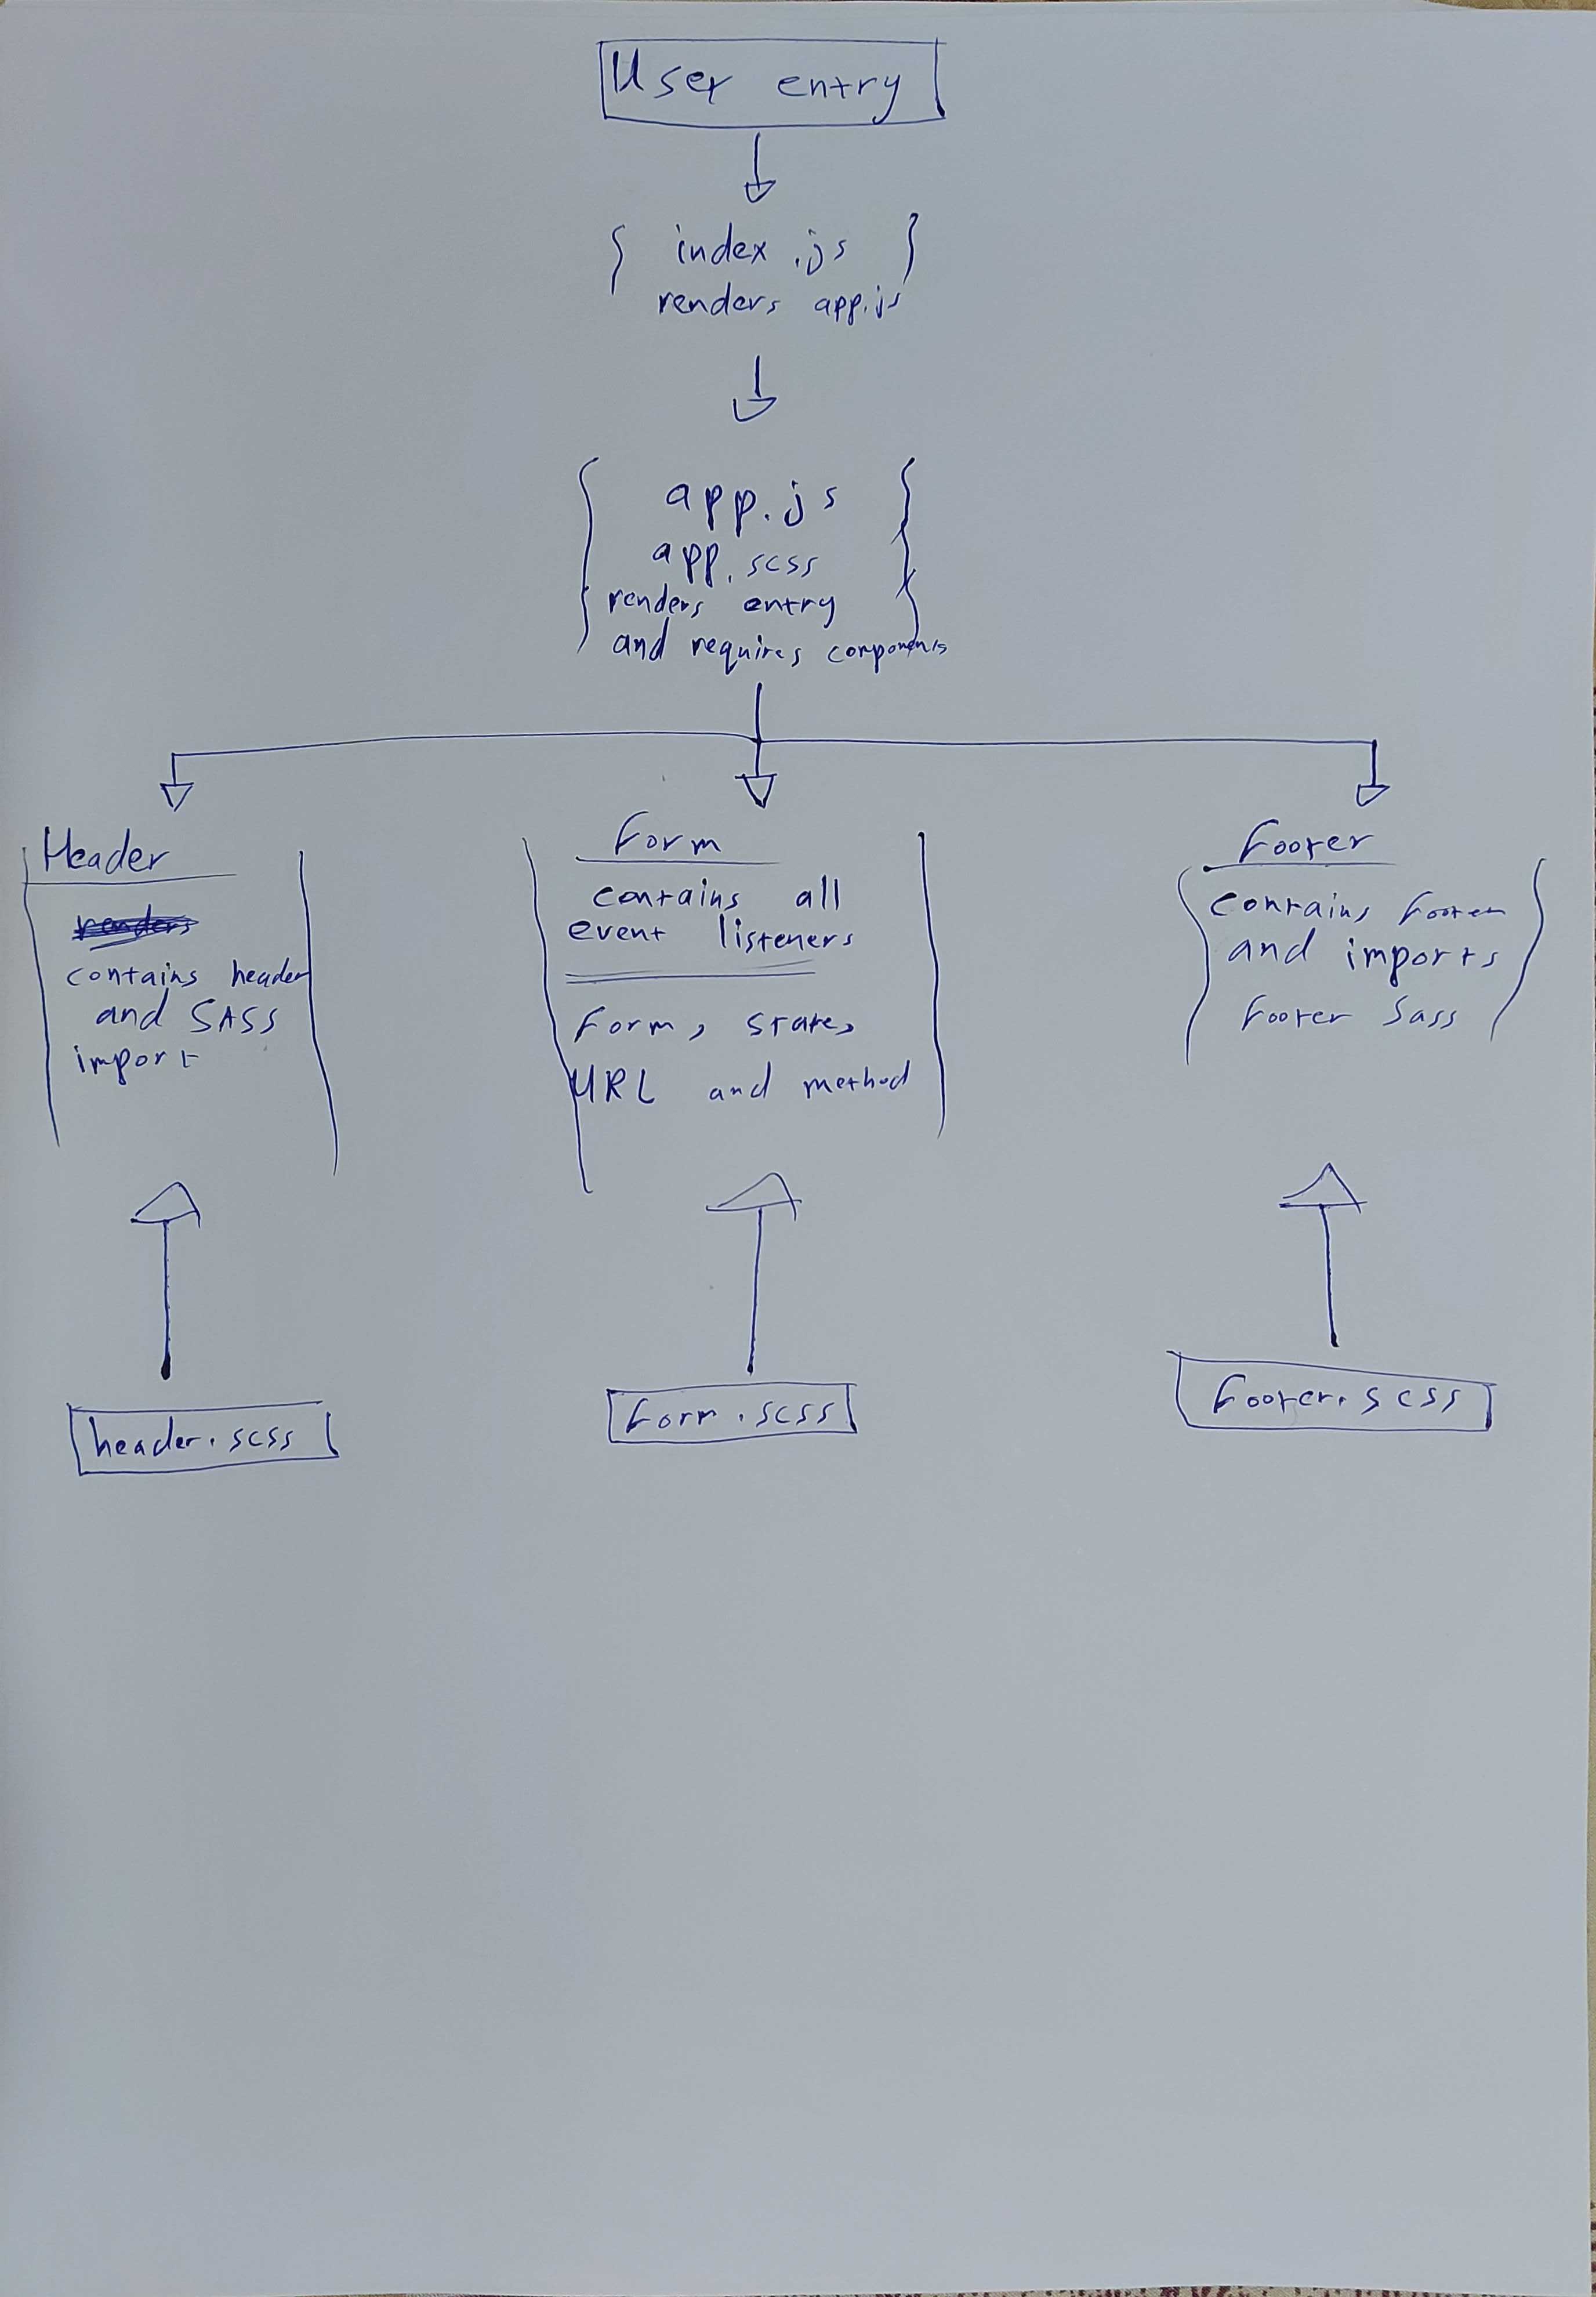 User entry
index.js
renders app.js
app.js
app.scss
renders entry
and requires components
Header
renders
contains header
and SASS
import
Form
contains all
event listeners
Form, state,
URL and method
Footer
contains footer
and imports
footer Sass
header.scss
Form.scss
Footer.scss